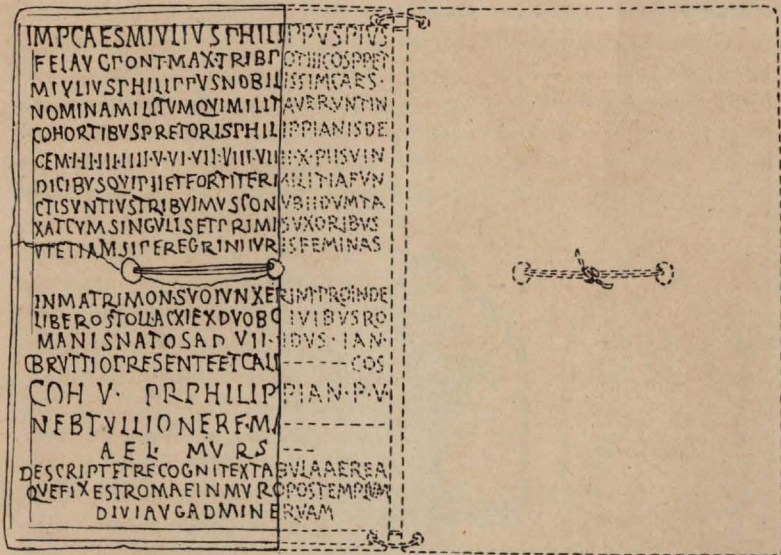 IMPCAESMIVLIVSPHILIPPVSPIVS
FELAVGPONT·MAX·TRIBPOTIIICOSPPET
MIVLIVSPHILIPPVSNOBILISSIMCAES·
NOMINAMILITVMQVIMILITAVERVNTIN
COHORTIBVSPRETORISPHILIPPIANISDE
CEM·I·II·III·IIII·V·VI·VII·VIII·VIIII·X·PIISVIN
DICIBVSQVIPIIETFORTITERMILITIAFVN
CTISVNTIVSTRIBVIMVSCONVBIIDVMTA
XATCVMSINGVLISETPRIMISVXORIBVS
VTETIAMSIPEREGRINIIVRISFEMINAS
INMATRIMONSVOIVNXERINTPROINDE
LIBEROSTOLLACXIEXDVOBCIVIBVSRO
MANISNATOSAD VII·IDVS·IAN·
CBRVTTIOPRESENTEETCALI------COS
COH V· PRPHILIPPIAN·P·V
NEBTVLLIONEREF·MA------
AEL MVRS---
DESCRIPTETRECOGNITEXTABVLAAEREA
QVEFIXESTROMAEINMVROPOSTEMPLVM
DIVIAVGADMINERVAM